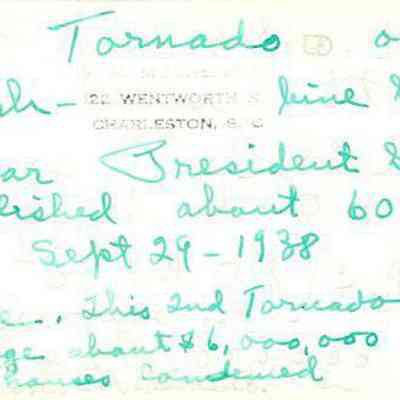 Tornado
22 WENTWORTH S
CHARLESTON, S. C
President
lished about 60
Sept 29-1938
This 2nd Tornado
ge about $6,000,000
houses condemned